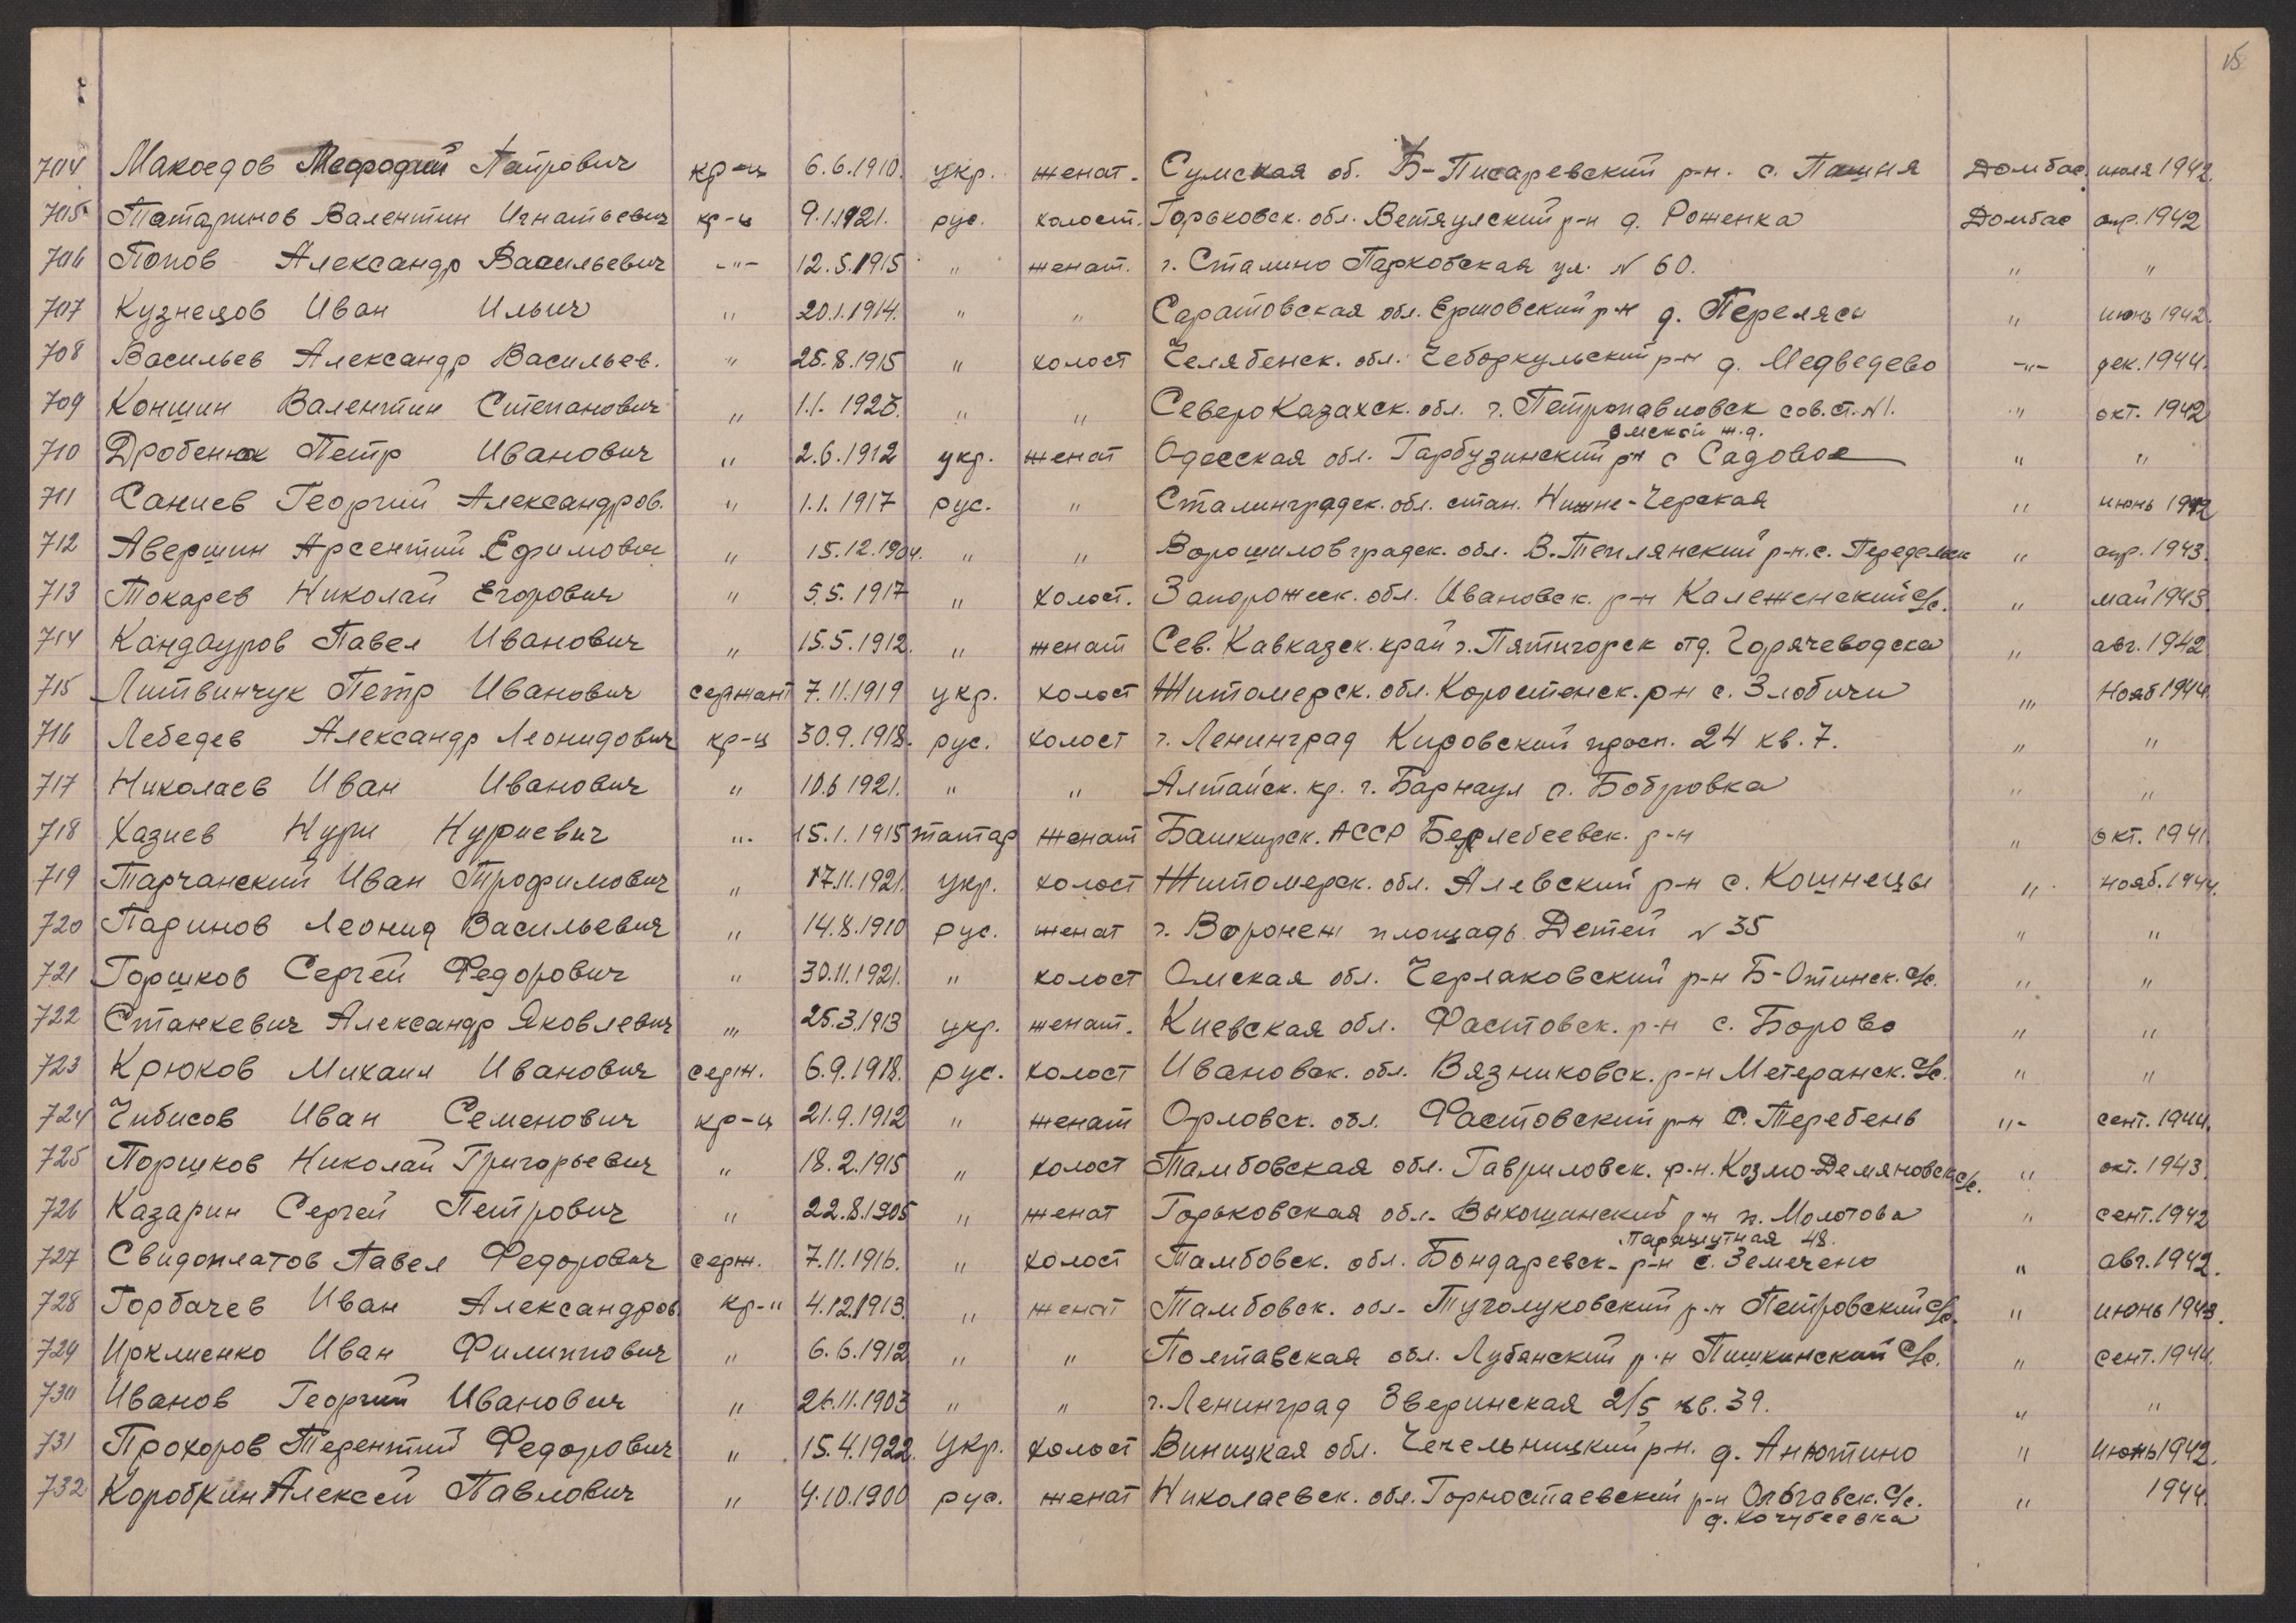 15
704 Макоедов Мефодий Патрович кр-ц 6.6.1910. укр. женат. Сумская об. Б-Писаревский р-н. с. Пашня Домбас июля 1942.
705 Татаринов Валентин Игнатьевич кр-ц 9.1.1921. рус. холост. Горьковск. обл. Ветяулский р-н д. Роженка Домбас апр. 1942
706 Попов Александр Васильевич -"- 12.5.1915 " женат. г. Сталино Парковская ул. N 60. " "
707 Кузнецов Иван Ильич " 20.1.1914. " " Саратовская обл. Ершовский р-н д. Перелясы " июнь 1942.
708 Васильев Александр Васильев. " 25.8.1915 " холост Челябенск. обл. Чеборкульский р-н д. Медведево -"- дек. 1944.
709 Коншин Валентин Степанович " 1.1.1923. " " Северо Казахск. обл. г. Петропавловск сов. ст. N1. " окт. 1942
Омской ж.д.
710 Дробенюк Петр Иванович " 2.6.1912 укр. женат Одесская обл. Гарбузинский р-н с Садовое " "
711 Саниев Георгий Александров. " 1.1.1917 рус. " Сталинградск. обл. стан. Нижне-Черская " июнь 1942
712 Авершин Арсентий Ефимович " 15.12.1904. " " Ворошиловградск. обл. В.-Теплянский р-н. с. Передельск " апр. 1943.
713 Токарев Николай Егорович " 5.5.1917 " холост. Запорожск. обл. Ивановск. р-н Калеженский с/с. " май 1943
714 Кандауров Павел Иванович " 15.5.1912. " женат Сев. Кавказск. край г. Пятигорск отд. Горячеводска " авг. 1942
715 Литвинчук Петр Иванович сержант 7.11.1919 укр. холост Житомерск. обл. Коростенск. р-н с. Злобичи " Нояб 1944.
716 Лебедев Александр Леонидович кр-ц 30.9.1918. рус. холост г. Ленинград Кировский просп. 24 кв. 7. " "
717 Николаев Иван Иванович " 10.6 1921. " " Алтайск. кр. г. Барнаул с. Бобровка " "
718 Хазиев Нури Нуриевич " 15.1.1915 татар женат Башкирск. АССР Берлебеевск. р-н " окт. 1941
719 Тарчанский Иван Трофимович " 17.11.1921. укр. холост Житомерск. обл. Алевский р-н с. Кошнецы " нояб. 1944.
720 Паринов Леонид Васильевич " 14.8.1910 рус. женат г. Воронеж площадь Детей N 35 " "
721 Горшков Сергей Федорович " 30.11.1921. " холост Омская обл. Черлаковский р-н Б-Отинск. с/с. " "
722 Станкевич Александр Яковлевич " 25.3.1913 укр. женат. Киевская обл. Фастовск. р-н с. Борово " "
723 Крюков Михаил Иванович серж. 6.9.1918. рус. холост Ивановск. обл. Вязниковск. р-н Метеранск. с/с. " "
724 Чибисов Иван Семенович кр-ц 21.9.1912 " женат Орловск. обл. Фастовский р-н с. Теребень "- сент. 1944.
725 Поршков Николай Григорьевич " 18.2.1915 " холост Тамбовская обл. Гавриловск. р-н. Козмо-Демяновск с/с. " окт. 1943
726 Казарин Сергей Петрович " 22.8.1905 " женат Горьковская обл. Выкошанский р-н п. Молотова " сент. 1942
Парашутная 48.
727 Свидоплатов Павел Федорович серж. 7.11.1916. " холост Тамбовск. обл. Бондаревск. р-н с. Земечено " авг. 1942.
728 Горбачев Иван Александров кр-ц 4.12.1913. " женат Тамбовск. обл. Туголуковский р-н Петровский с/с. " июнь 1943.
729 Ирклиенко Иван Филиппович " 6.6.1912 " " Полтавская обл. Лубянский р-н Пишкинский с/с. " сент. 1944.
730 Иванов Георгий Иванович " 26.11.1903 " " г. Ленинград Зверинская 2/5 кв. 39. " "
731 Прохоров Терентий Федорович " 15.4.1922. Укр. холост Виницкая обл. Чечельницкий р-н. д. Анютино " Июнь 1942.
732 Коробкин Алексей Павлович " 4.10.1900 рус. женат Николаевск. обл. Горностаевский р-н Ольгавск. с/с. " 1944.
д. Кочубеевка